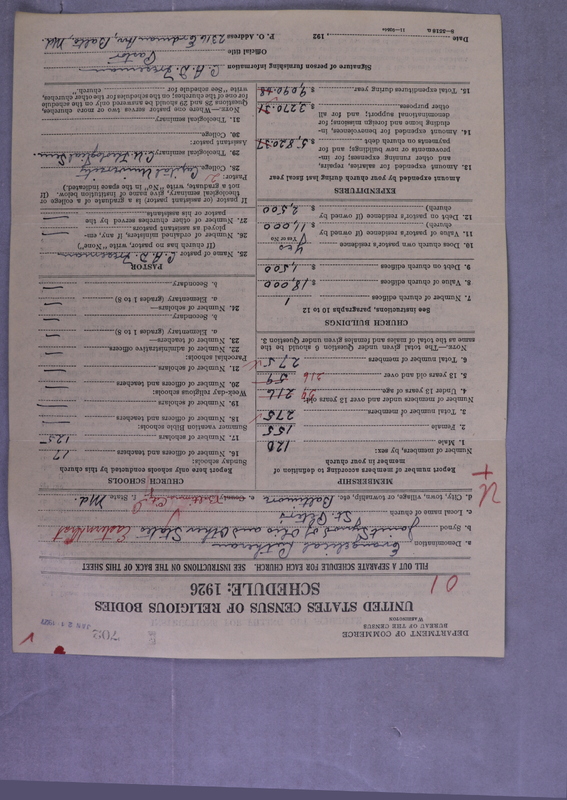 E 702
JAN 24 1927
DEPARTMENT OF COMMERCE
BUREAU OF THE CENSUS
WASHINGTON
UNITED STATES CENSUS OF RELIGIOUS BODIES
SCHEDULE: 1926
01
FILL OUT A SEPARATE SCHEDULE FOR EACH CHURCH. SEE INSTRUCTIONS ON THE BACK OF THIS SHEET
a. Denomination Evangelical Lutheran
b. Synod Joint Synod of Ohio and Other States
c. Local name of church St. Peter's
d. City, town, village, or township, etc. Baltimore e. County Baltimore City f. State Md.
MEMBERSHIP
Report number of members according to definition of member in your church
Number of members, by sex:
1. Male 120
2. Female 155
3. Total number of members 275
Number of members under and over 13 years old:
4. Under 13 years of age 216 59
5. 13 years old and over 59 216
6. Total number of members 275
NOTE.—The total given under Question 6 should be the same as the total of males and females given under Question 3.
CHURCH BUILDINGS
See instructions, paragraphs 10 to 12
7. Number of church edifices 1
8. Value of church edifices $ 18,000
9. Debt on church edifices $ 1,500
10. Does church own pastor's residence Yes
Yes or No
11. Value of pastor's residence (if owned by church) $ 11,000
12. Debt on pastor's residence (if owned by church) $ 2,500
EXPENDITURES
Amount expended by your church during last fiscal year
13. Amount expended for salaries, repairs, and other running expenses; for improvements or new buildings; and for payments on church debt $ 5,820.37
14. Amount expended for benevolences, including home and foreign missions; for denominational support; and for all other purposes $ 3,270.31
15. Total expenditures during year $ 9,090.68
CHURCH SCHOOLS
Report here only schools conducted by this church
Sunday schools:
16. Number of officers and teachers 17
17. Number of scholars 125
Summer vacation Bible schools:
18. Number of officers and teachers —
19. Number of scholars —
Week-day religious schools:
20. Number of officers and teachers —
21. Number of scholars —
Parochial schools:
22. Number of administrative officers —
23. Number of teachers—
a. Elementary (grades 1 to 8) —
b. Secondary —
24. Number of scholars—
a. Elementary (grades 1 to 8) —
b. Secondary —
PASTOR
25. Name of pastor
(If church has no pastor, write "None")
26. Number of ordained ministers, if any, employed as assistant pastors —
27. Number of other churches served by the pastor or his assistants —
If pastor (or assistant pastor) is a graduate of a college or theological seminary, give name of institution below. (If not a graduate, write "No" in the space indicated.)
Pastor:
28. College Capital University
29. Theological seminary
Assistant pastor:
30. College
31. Theological seminary
NOTE.—Where one pastor serves two or more churches, Questions 28 and 29 should be answered only on the schedule for one of the churches; on the schedules for the other churches, write "See schedule for church."
Signature of person furnishing information
Official title Pastor
Date 192 P. O. Address 2316 Erdman Av., Balto, Md.